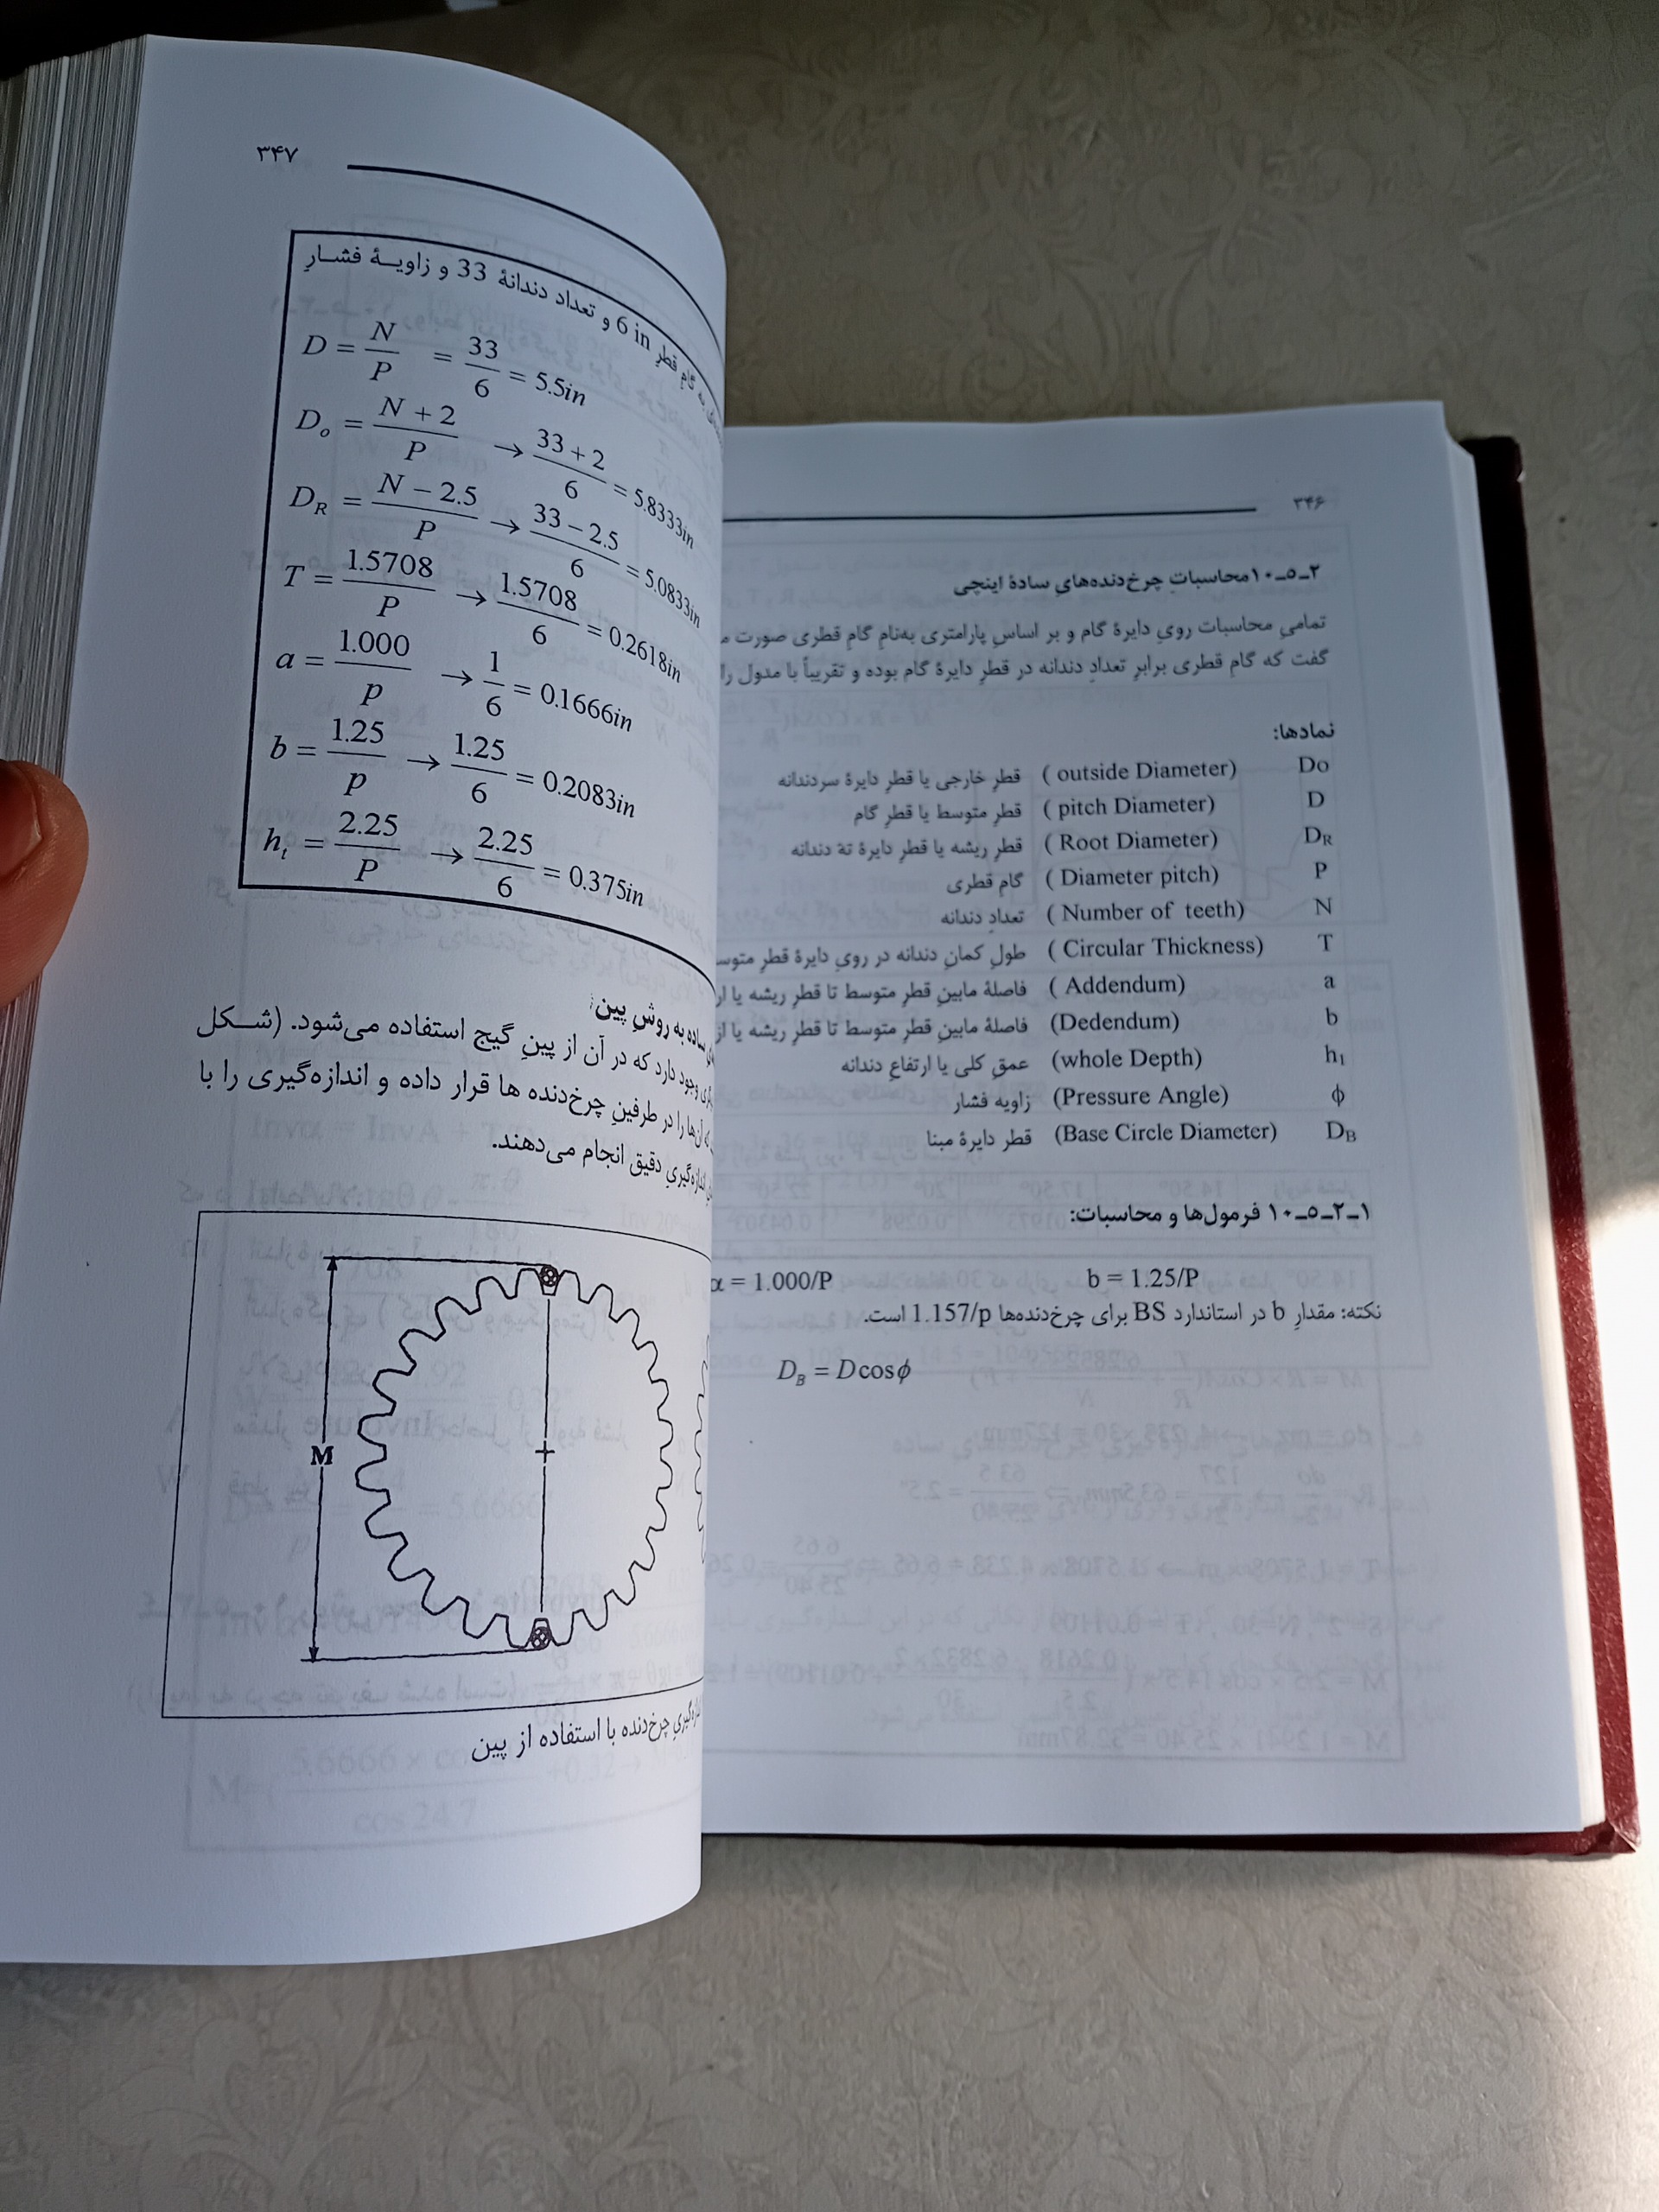 ۳۴۶
۱۰_۵_۲ محاسباتِ چرخ‌دنده‌هایِ سادهٔ اینچی
تمامیِ محاسبات رویِ دایرهٔ گام و بر اساسِ پارامتری به‌نامِ گام قطری صورت
گفت که گام قطری برابرِ تعدادِ دندانه در قطرِ دایرهٔ گام بوده و تقریباً با مدول را
نمادها:
Do ( outside Diameter) قطرِ خارجی یا قطرِ دایرهٔ سردندانه
D ( pitch Diameter) قطرِ متوسط یا قطرِ گام
D_R ( Root Diameter) قطرِ ریشه یا قطرِ دایرهٔ تهٔ دندانه
P ( Diameter pitch) گام قطری
N ( Number of teeth) تعدادِ دندانه
T ( Circular Thickness) طولِ کمانِ دندانه در رویِ دایرهٔ قطرِ
a ( Addendum) فاصلهٔ مابینِ قطرِ متوسط تا قطرِ ریشه یا
b (Dedendum) فاصلهٔ مابینِ قطرِ متوسط تا قطرِ ریشه یا
h₁ (whole Depth) عمقِ کلی یا ارتفاعِ دندانه
ϕ (Pressure Angle) زاویه فشار
D_B (Base Circle Diameter) قطر دایرهٔ مبنا
۱۰_۵_۲_۱ فرمول‌ها و محاسبات:
α = 1.000/P b = 1.25/P
نکته: مقدارِ b در استاندارد BS برای چرخ‌دنده‌ها 1.157/p است.
D_B = D cos ϕ
۳۴۷
گامِ قطرِ 6 in و تعداد دندانهٔ 33 و زاویـهٔ فشـارِ
D = N/P = 33/6 = 5.5in
D_o = (N + 2)/P → (33 + 2)/6 = 5.8333in
D_R = (N − 2.5)/P → (33 − 2.5)/6 = 5.0833in
T = 1.5708/P → 1.5708/6 = 0.2618in
a = 1.000/p → 1/6 = 0.1666in
b = 1.25/p → 1.25/6 = 0.2083in
h_t = 2.25/P → 2.25/6 = 0.375in
ساده به روشِ پین
وجود دارد که در آن از پینِ گیج استفاده می‌شود. (شـکل
آن‌ها را در طرفینِ چرخ‌دنده ها قرار داده و اندازه‌گیری را با
اندازه‌گیریِ دقیق انجام می‌دهند.
M
چرخ‌دنده با استفاده از پین